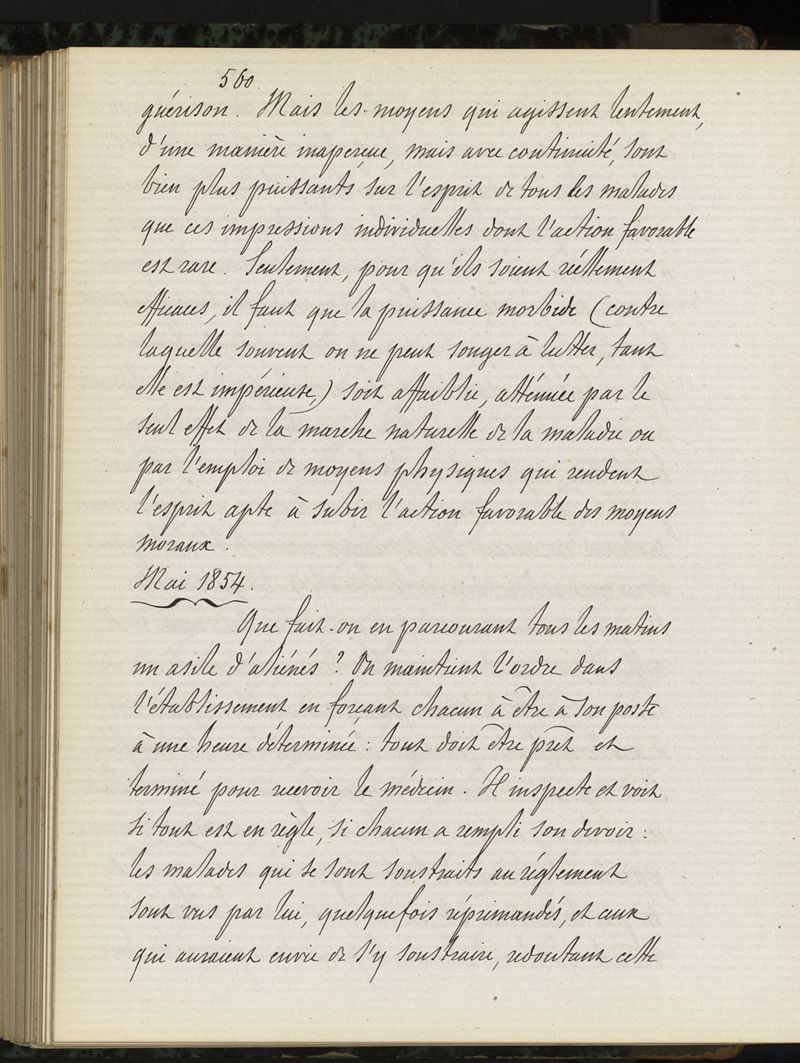 560.
guérison. Mais les moyens qui agissent lentement,
d'une manière inaperçue, mais avec continuité, sont
bien plus puissants sur l'esprit de tous les malades
que ces impressions individuelles dont l'action favorable
est rare. Seulement, pour qu'ils soient réellement
efficaces, il faut que la puissance morbide (contre
laquelle souvent on ne peut songer à lutter, tant
elle est impérieuse,) soit affaiblie, atténuée par le
seul effet de la marche naturelle de la maladie ou
par l'emploi de moyens physiques qui rendent
l'esprit apte à subir l'action favorable des moyens
moraux.
Mai 1854.
Que fait-on en parcourant tous les matins
un asile d'aliénés ? On maintient l'ordre dans
l'établissement en forçant chacun à être à son poste
à une heure déterminée : tout doit être prêt et
terminé pour recevoir le médecin. Il inspecte et voit
si tout est en règle, si chacun a rempli son devoir :
les malades qui se sont soustraits au réglement
sont vus par lui, quelquefois réprimandés, et ceux
qui auraient envie de s'y soustraire, redoutant cette